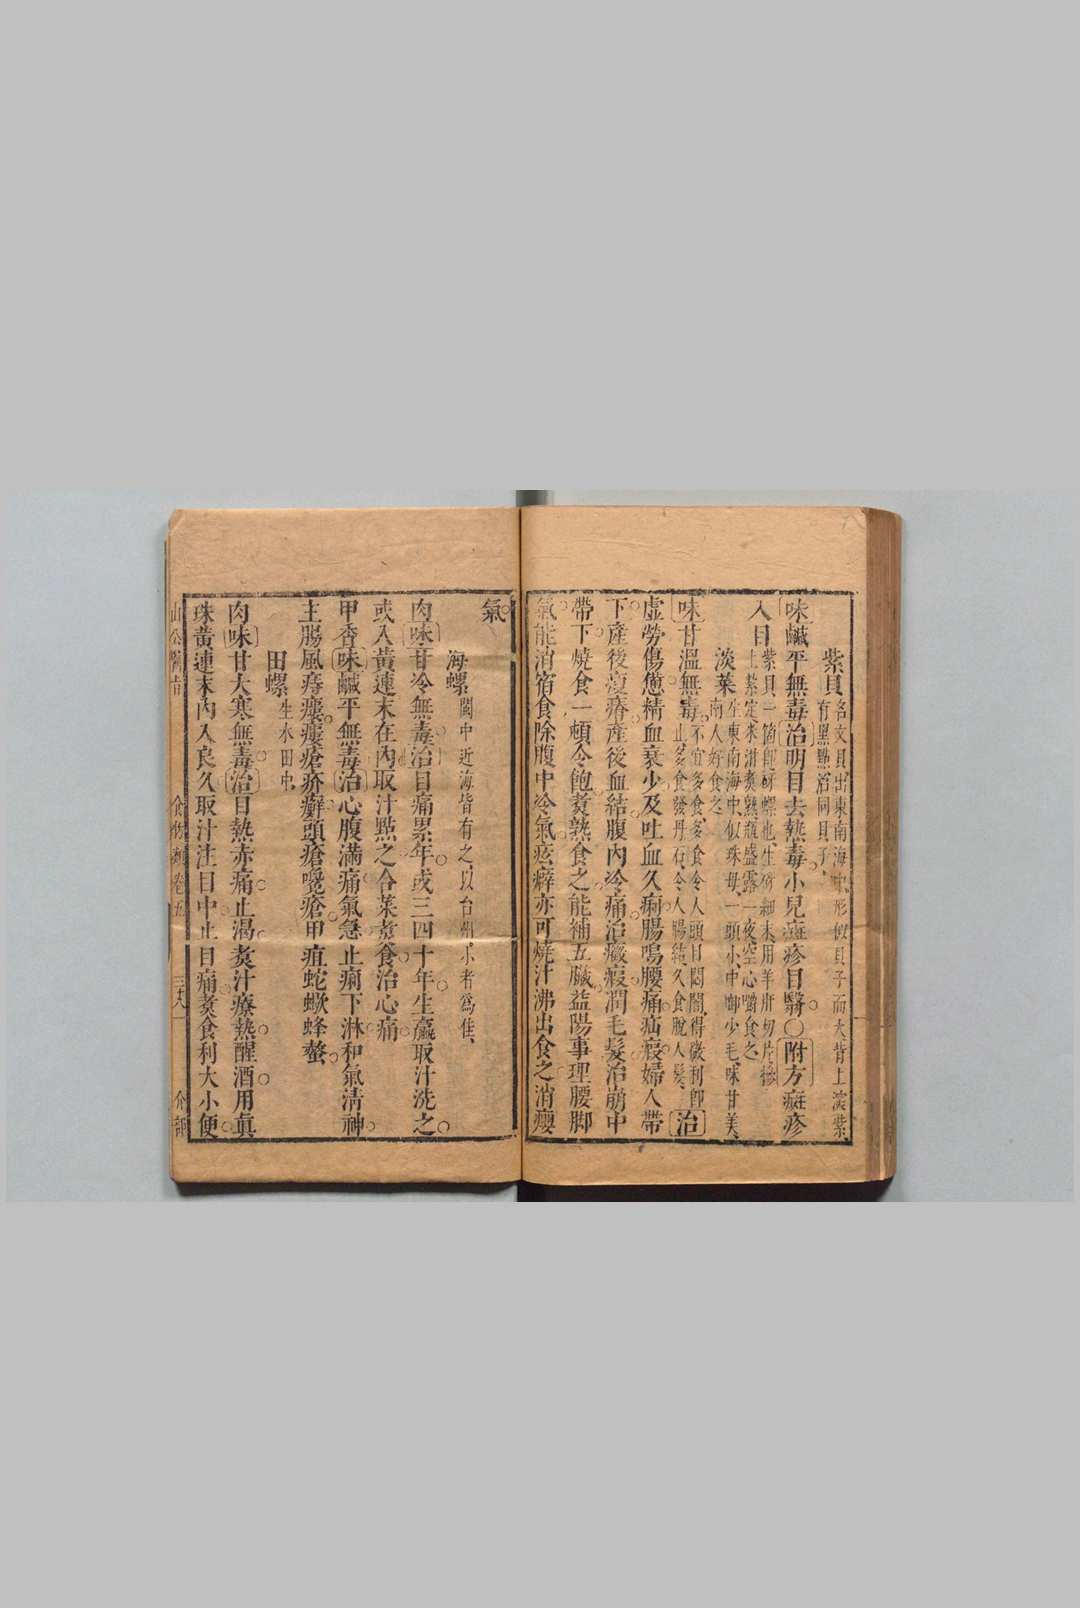 紫貝 名文貝出東南海中形似貝子而大背上深紫
有黑點治同貝子
味鹹平無毒治明目去熱毒小兒癍疹目翳○附方癍疹
入目 紫貝一箇即砑螺也生俻細末用羊肝切片摻
上紮定米泔煑熟瓶盛露一夜空心嚼食之
淡菜 生東南海中似珠母一頭小中啣少毛味甘美
南人好食之
味甘溫無毒 不宜多食多食令人頭目悶闇得微利即
止多食發丹石令人腸結久食脫人髮 治
虛勞傷憊精血衰少及吐血久痢腸鳴腰痛疝瘕婦人帶
下產後瘦瘠產後血結腹內冷痛治癥瘕潤毛髮治崩中
帶下燒食一頓令飽煑熟食之能補五臟益陽事理腰脚
氣能消宿食除腹中冷氣痃癖亦可燒汁沸出食之消癭
氣
海螺 閩中近海皆有之以台州小者為佳
肉味甘冷無毒治目痛累年或三四十年生蠃取汁洗之
或入黃連末在內取汁點之合菜煑食治心痛
甲香味鹹平無毒治心腹滿痛氣急止痢下淋和氣清神
主腸風痔瘻瘻瘡疥癬頭瘡嚵瘡甲疽蛇蠍蜂螫
田螺 生水田中
肉味甘大寒無毒治目熱赤痛止渴煑汁療熱醒酒用真
珠黃連末內入良久取汁注目中止目痛煑食利大小便
山公醫旨 食物類卷五 三十八 介部